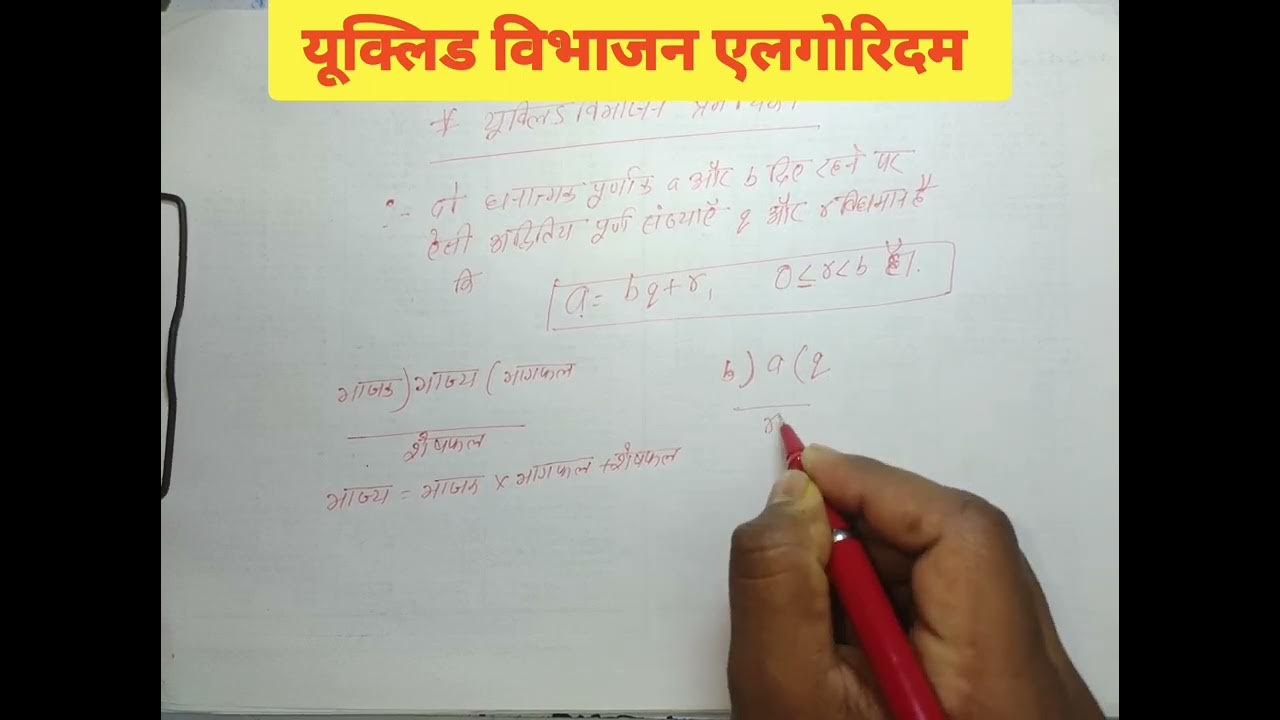 यूक्लिड विभाजन एलगोरिदम
* यूक्लिड विभाजन
:- दो धनात्मक पूर्णांक a और b दिए रहने पर
ऐसी अद्वितिय पूर्ण संख्याएँ q और r विद्यमान है
कि a = bq + r, 0 ≤ r < b है।
भाजक ) भाज्य ( भागफल
शेषफल
भाज्य = भाजक × भागफल + शेषफल
b ) a ( q
r